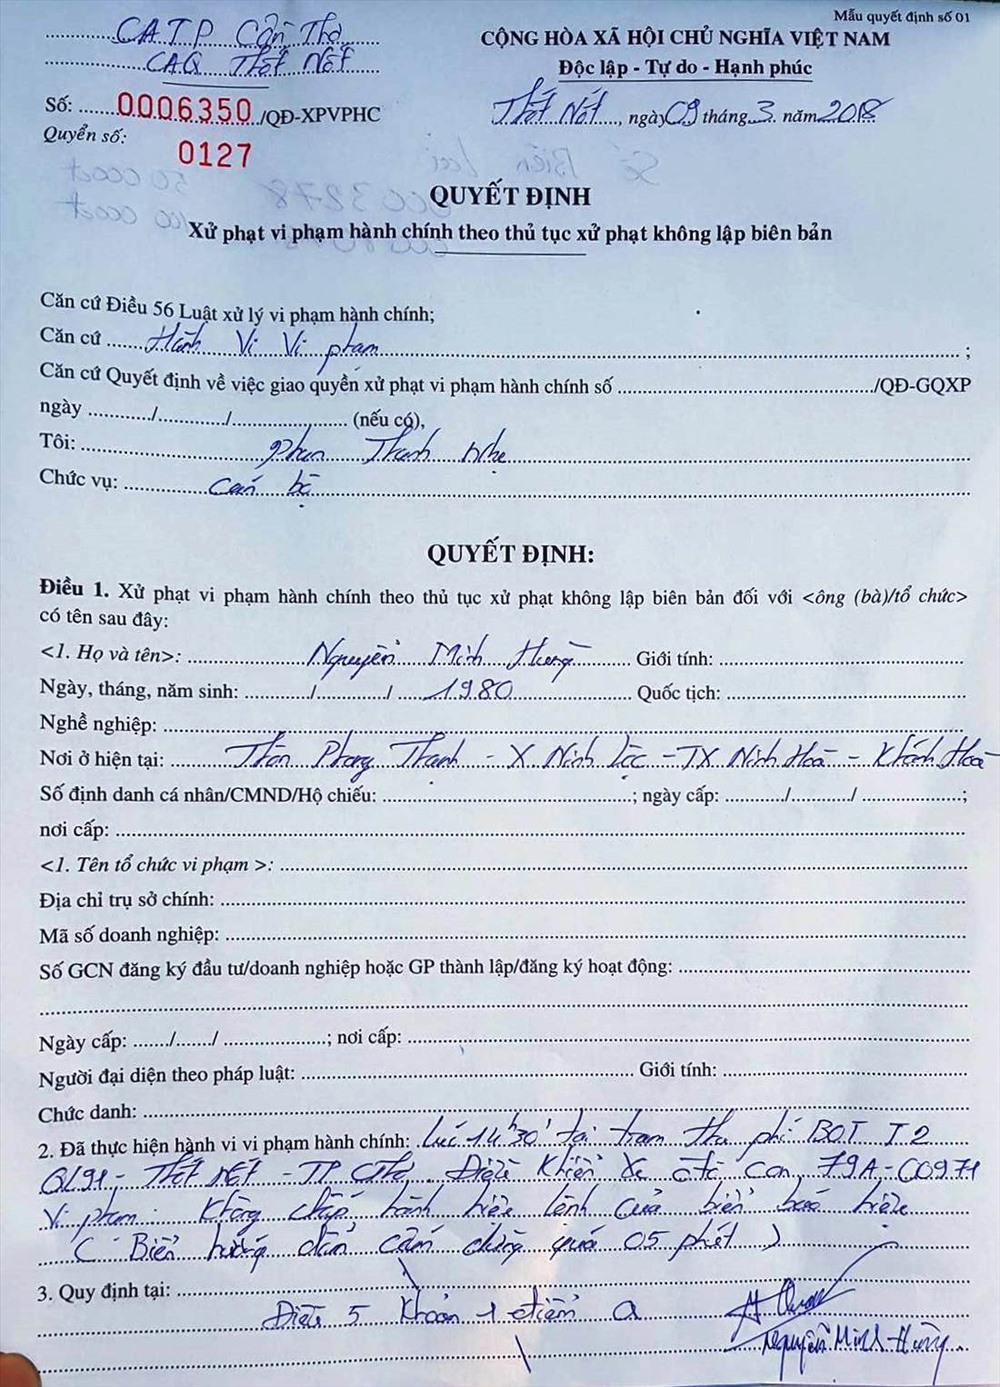 Mẫu quyết định số 01
CATP Cần Thơ
CAQ Thốt Nốt
CỘNG HÒA XÃ HỘI CHỦ NGHĨA VIỆT NAM
Độc lập - Tự do - Hạnh phúc
Số: 0006350/QĐ-XPVPHC
Quyển số: 0127
Thốt Nốt, ngày 09 tháng 3 năm 2018
QUYẾT ĐỊNH
Xử phạt vi phạm hành chính theo thủ tục xử phạt không lập biên bản
Căn cứ Điều 56 Luật xử lý vi phạm hành chính;
Căn cứ Hành Vi Vi phạm ;
Căn cứ Quyết định về việc giao quyền xử phạt vi phạm hành chính số ........../QĐ-GQXP
ngày ........../........../.......... (nếu có),
Tôi: Phan Thanh Nhẹ
Chức vụ: Cán bộ
QUYẾT ĐỊNH:
Điều 1. Xử phạt vi phạm hành chính theo thủ tục xử phạt không lập biên bản đối với <ông (bà)/tổ chức>
có tên sau đây:
<1. Họ và tên>: Nguyễn Minh Hùng Giới tính:
Ngày, tháng, năm sinh: ........../........../ 1980 Quốc tịch:
Nghề nghiệp:
Nơi ở hiện tại: Thôn Phong Thạnh - X Ninh Lộc - TX Ninh Hoà - Khánh Hoà
Số định danh cá nhân/CMND/Hộ chiếu: ..........; ngày cấp: ........../........../..........;
nơi cấp:
<1. Tên tổ chức vi phạm >:
Địa chỉ trụ sở chính:
Mã số doanh nghiệp:
Số GCN đăng ký đầu tư/doanh nghiệp hoặc GP thành lập/đăng ký hoạt động:
Ngày cấp: ......./......./ ..........; nơi cấp:
Người đại diện theo pháp luật: .......... Giới tính:
Chức danh:
2. Đã thực hiện hành vi vi phạm hành chính: Lúc 14h30' tại trạm thu phí BOT T2
QL91, Thốt Nốt - TP CThơ, Điều Khiển Xe ôtô con 79A-00971
Vi phạm: Không chấp hành hiệu lệnh của biển báo hiệu
( Biển hướng dẫn cấm dừng quá 05 phút )
3. Quy định tại:
Điều 5 Khoản 1 điểm a
Nguyễn Minh Hùng